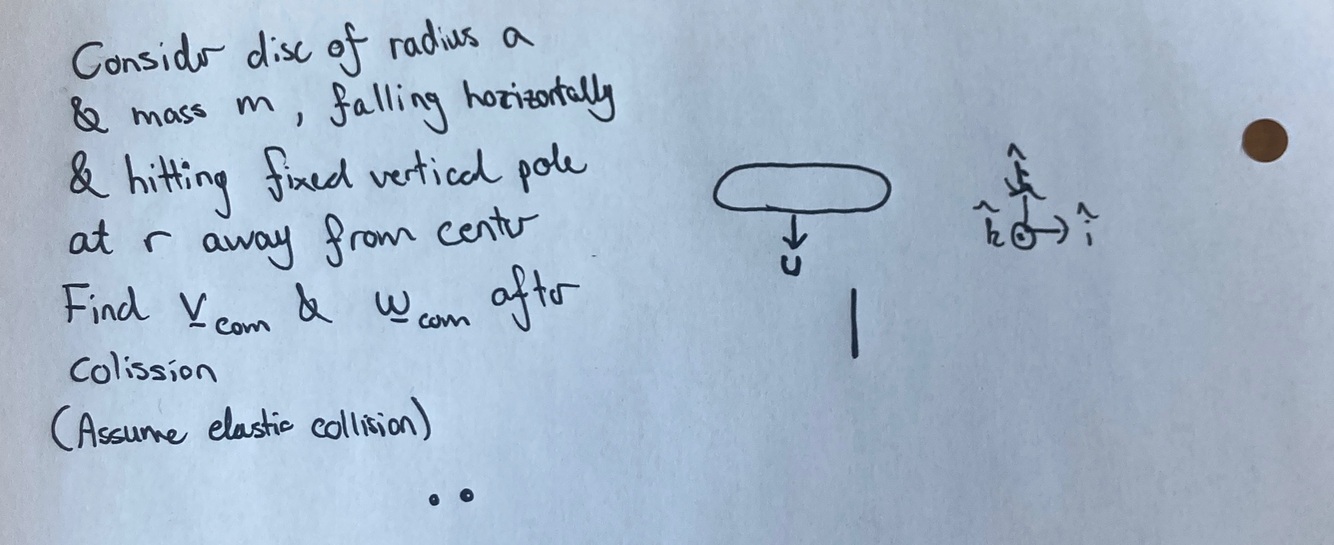 Consider disc of radius a
& mass m, falling horizontally
& hitting fixed vertical pole
at r away from center
Find v com & ω com after
colission
(Assume elastic collision)
u
ĵ
k̂
î